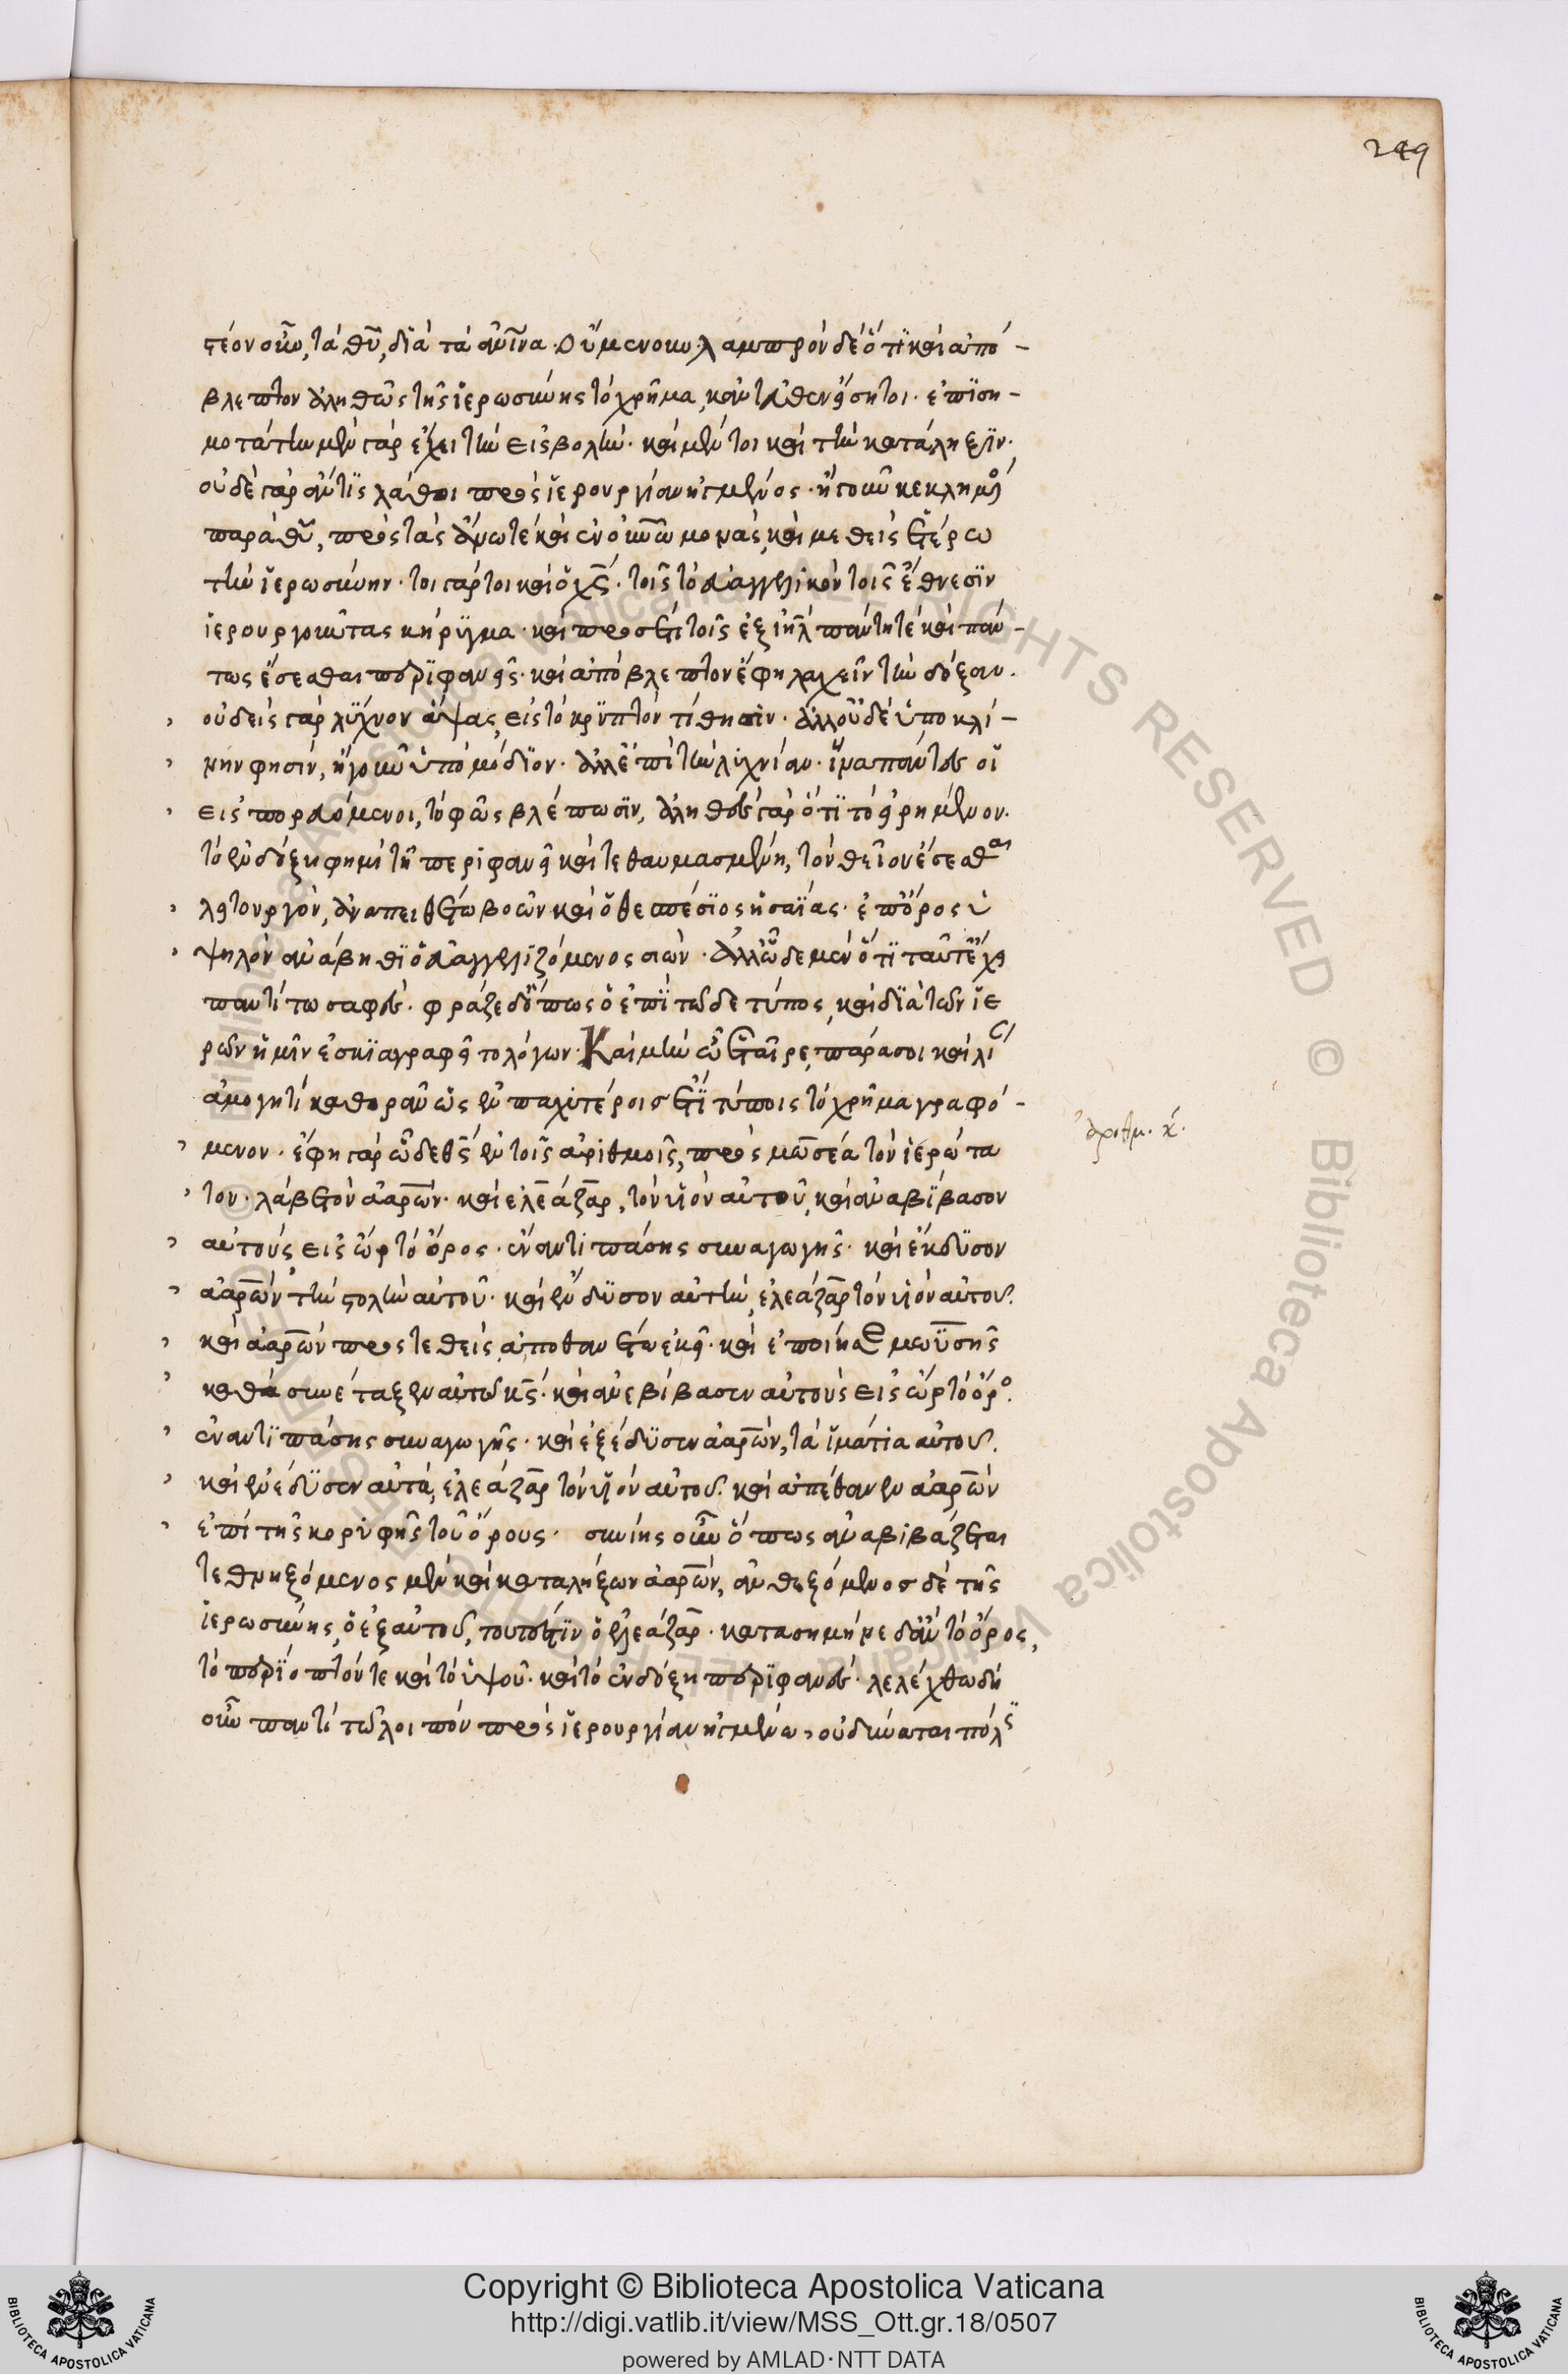 249
τέον οὖν, τὰ θῦ, διὰ τὰ αὐτῖνα. Οὐμενοῦν. λαμπρὸν δὲ ὅτι καὶ ἀπό-
βλεπτον ἀληθῶς τῆς ἱερωσύνης τὸ χρῆμα, κἀντεῦθεν εἴσηται. ἐπιση-
μοτάτην μὲν γὰρ ἔχει τὴν εἰσβολήν. καὶ μέντοι καὶ τὴν κατάληξιν.
οὐδὲ γὰρ ἄν τις λάθοι πρὸς ἱερουργίαν ἡγμένος. ἤγουν κεκλημέ
παρὰ θῦ, πρὸς τὰς ἄνω τὲ καὶ ἐν οὐνῶ μονάς, καὶ μεθεὶς ἑτέρω
τὴν ἱερωσύνην. τοιγάρτοι καὶ ὁ χς. τοῖς τὸ εὐαγγελικὸν τοῖς ἔθνεσιν
ἱερουργοῦντας κήρυγμα. καὶ προσέτι τοῖς ἐξ ιηλ πάντη τὲ καὶ πάν-
τως ἔσεσθαι περιφανεῖς. καὶ ἀπόβλεπτον ἔφη λαχεῖν τὴν δόξαν.
οὐδεὶς γὰρ λύχνον ἅψας, εἰς τὸ κρυπτὸν τίθησιν. ἀλλ' οὐδὲ ὑπὸ κλί-
νην φησίν, ἤγουν ὑπὸ μόδιον. ἀλλ' ἐπὶ τὴν λυχνίαν. ἵνα πάντες οἱ
εἰσπορευόμενοι, τὸ φῶς βλέπωσιν, ἀληθὲς γὰρ ὅτι τὸ εἰρημένον.
τὸ ἐν δόξη φημὶ τῇ περιφανεῖ καὶ τεθαυμασμένη, τὸν θεῖον ἔσεσθαι
λειτουργόν, ἀναπειθέτω βοῶν καὶ ὁ θεσπέσιος ἠσαΐας. ἐπ' ὄρος ὑ
ψηλὸν ἀνάβηθι ὁ εὐαγγελιζόμενος σιών. ἀλλ' ὧδε μὲν ὅτι ταῦτ' ἔχει
παντί τω σαφές. φράζε δ' ὅπως ὁ ἐπὶ τῶδε τύπος, καὶ διὰ τῶν ἱε
ρῶν ἡμῖν ἐσκιαγραφεῖτο λόγων. Καὶ μὴν ὦ ἑταῖρε, πάρα σοι καὶ λίαν
ἀμογητὶ καθορᾶν ὡς ἐν παχυτέροις ἔτι τύποις τὸ χρῆμα γραφό-
μενον. ἔφη γὰρ ὧδε θς ἐν τοῖς ἀριθμοῖς, πρὸς μωσέα τὸν ἱερώτα
ἀριθμ. κ.
τον. λάβε τὸν ἀαρών. καὶ ἐλεάζαρ, τὸν υἱὸν αὐτοῦ, καὶ ἀναβίβασον
αὐτοὺς εἰς ὢρ τὸ ὄρος. ἔναντι πάσης συναγωγῆς. καὶ ἔκδυσον
ἀαρὼν τὴν στολὴν αὐτοῦ. καὶ ἔνδυσον αὐτὴν, ἐλεάζαρ τὸν υἱὸν αὐτοῦ.
καὶ ἀαρὼν προστεθεὶς ἀποθανέτω ἐκεῖ. καὶ ἐποίησε μωϋσῆς
καθὰ συνέταξεν αὐτῶ κς. καὶ ἀνεβίβασεν αὐτοὺς εἰς ὢρ τὸ ὄρο.
ἔναντι πάσης συναγωγῆς. καὶ ἐξέδυσεν ἀαρών, τὰ ἱμάτια αὐτοῦ.
καὶ ἐνέδυσεν αὐτά, ἐλεάζαρ τὸν υἱὸν αὐτοῦ. καὶ ἀπέθανεν ἀαρὼν
ἐπὶ τῆς κορυφῆς τοῦ ὄρους. συνίης οὖν ὅπως ἀναβιβάζεται
τεθνηξόμενος μὲν καὶ καταλήξων ἀαρών, ἀνθεξόμενος δὲ τῆς
ἱερωσύνης, ὁ ἐξ αὐτοῦ, τουτέστιν ὁ ἐλεάζαρ. κατασημήνειε δ' ἂν τὸ ὄρος,
τὸ περίοπτόν τε καὶ τὸ ὑψοῦ. καὶ τὸ ἐν δόξη περιφανές. λελέχθω δὴ
οὖν παντί τῶ λοιπὸν πρὸς ἱερουργίαν ἡγμένω, οὐ δύναται πόλις
Copyright © Biblioteca Apostolica Vaticana
http://digi.vatlib.it/view/MSS_Ott.gr.18/0507
powered by AMLAD·NTT DATA